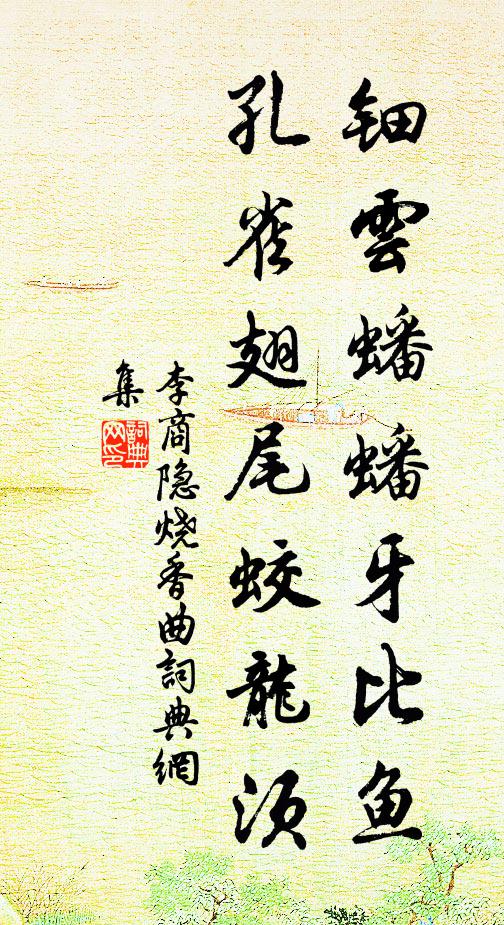 钿雲蟠蟠牙比鱼
孔雀翅尾蛟龍须
李商隐烧香曲詞典網
集
詞典网印